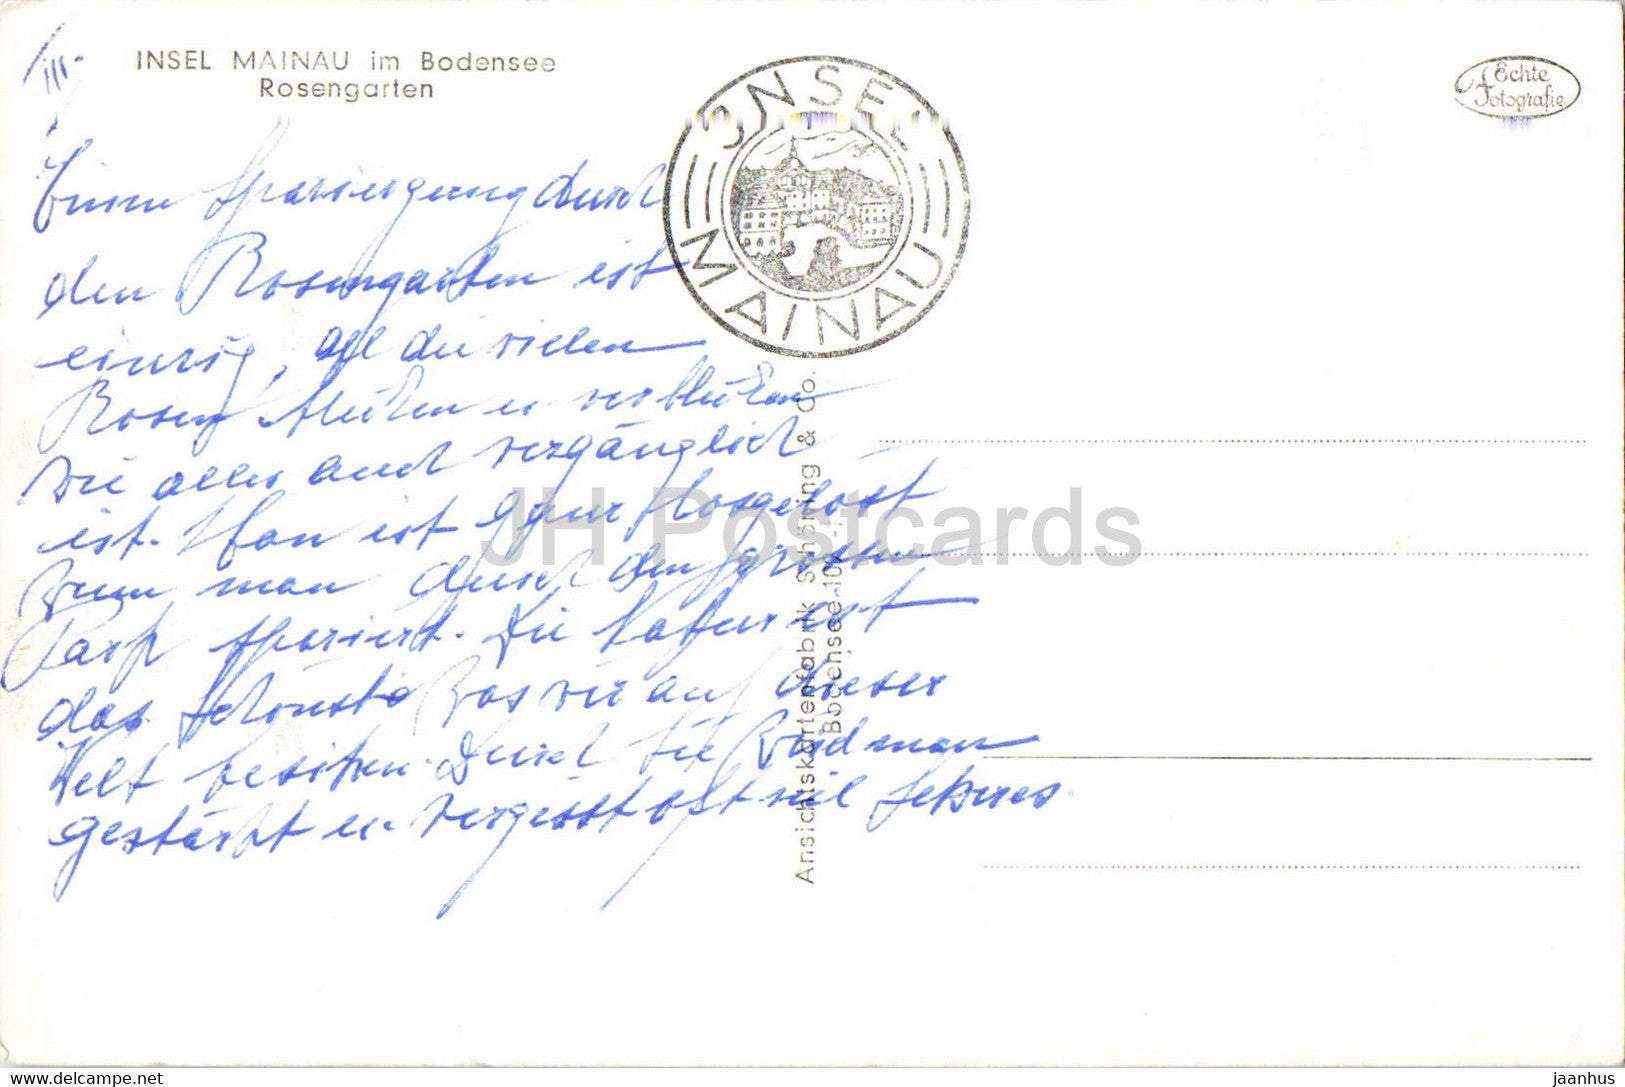 III.
INSEL MAINAU im Bodensee
Rosengarten
INSEL MAINAU
Echte
Fotografie
Einen Spaziergang durch
den Rosengarten ist
einzig, all die vielen
Rosen blühen u verblühen
wie alles auch vergänglich
ist. Man ist ganz losgelöst
wenn man durch den grossen
Park spaziert. Die Natur ist
das Schönste was wir auf dieser
Welt besitzen. Durch sie wird man
gestärkt u. vergesst oft viel
Ansichtskartenfabrik Schöning & Co.
Bodensee
JH Postcards
jaanhus
hippostcard.com